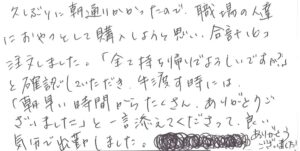 久しぶりに朝通りかかったので、職場の人達
におやつとして購入しようと思い、合計16コ
注文しました。「全て持ち帰りでよろしいですか?」
と確認していただき、手渡す時には、
「朝早い時間からたくさん、ありがとうご
ざいました」と一言添えてくださって、良い
気分で出勤しました。
ありがとう
ございました!